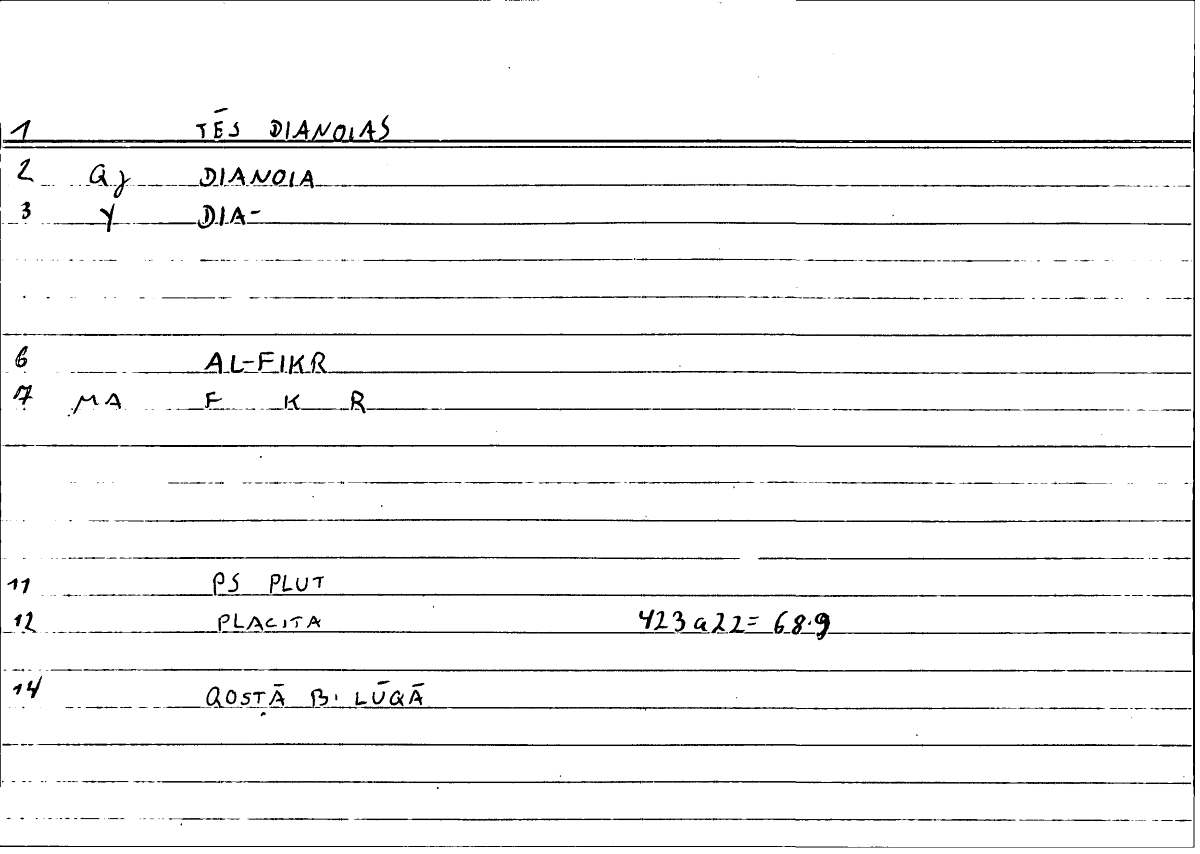 1 TĒS DIANOIAS
2 Qγ DIANOIA
3 Y DIA-
6 AL-FIKR
7 MA F K R
11 PS PLUT
12 PLACITA 423a22= 68.9
14 QOSṬĀ B. LŪQĀ